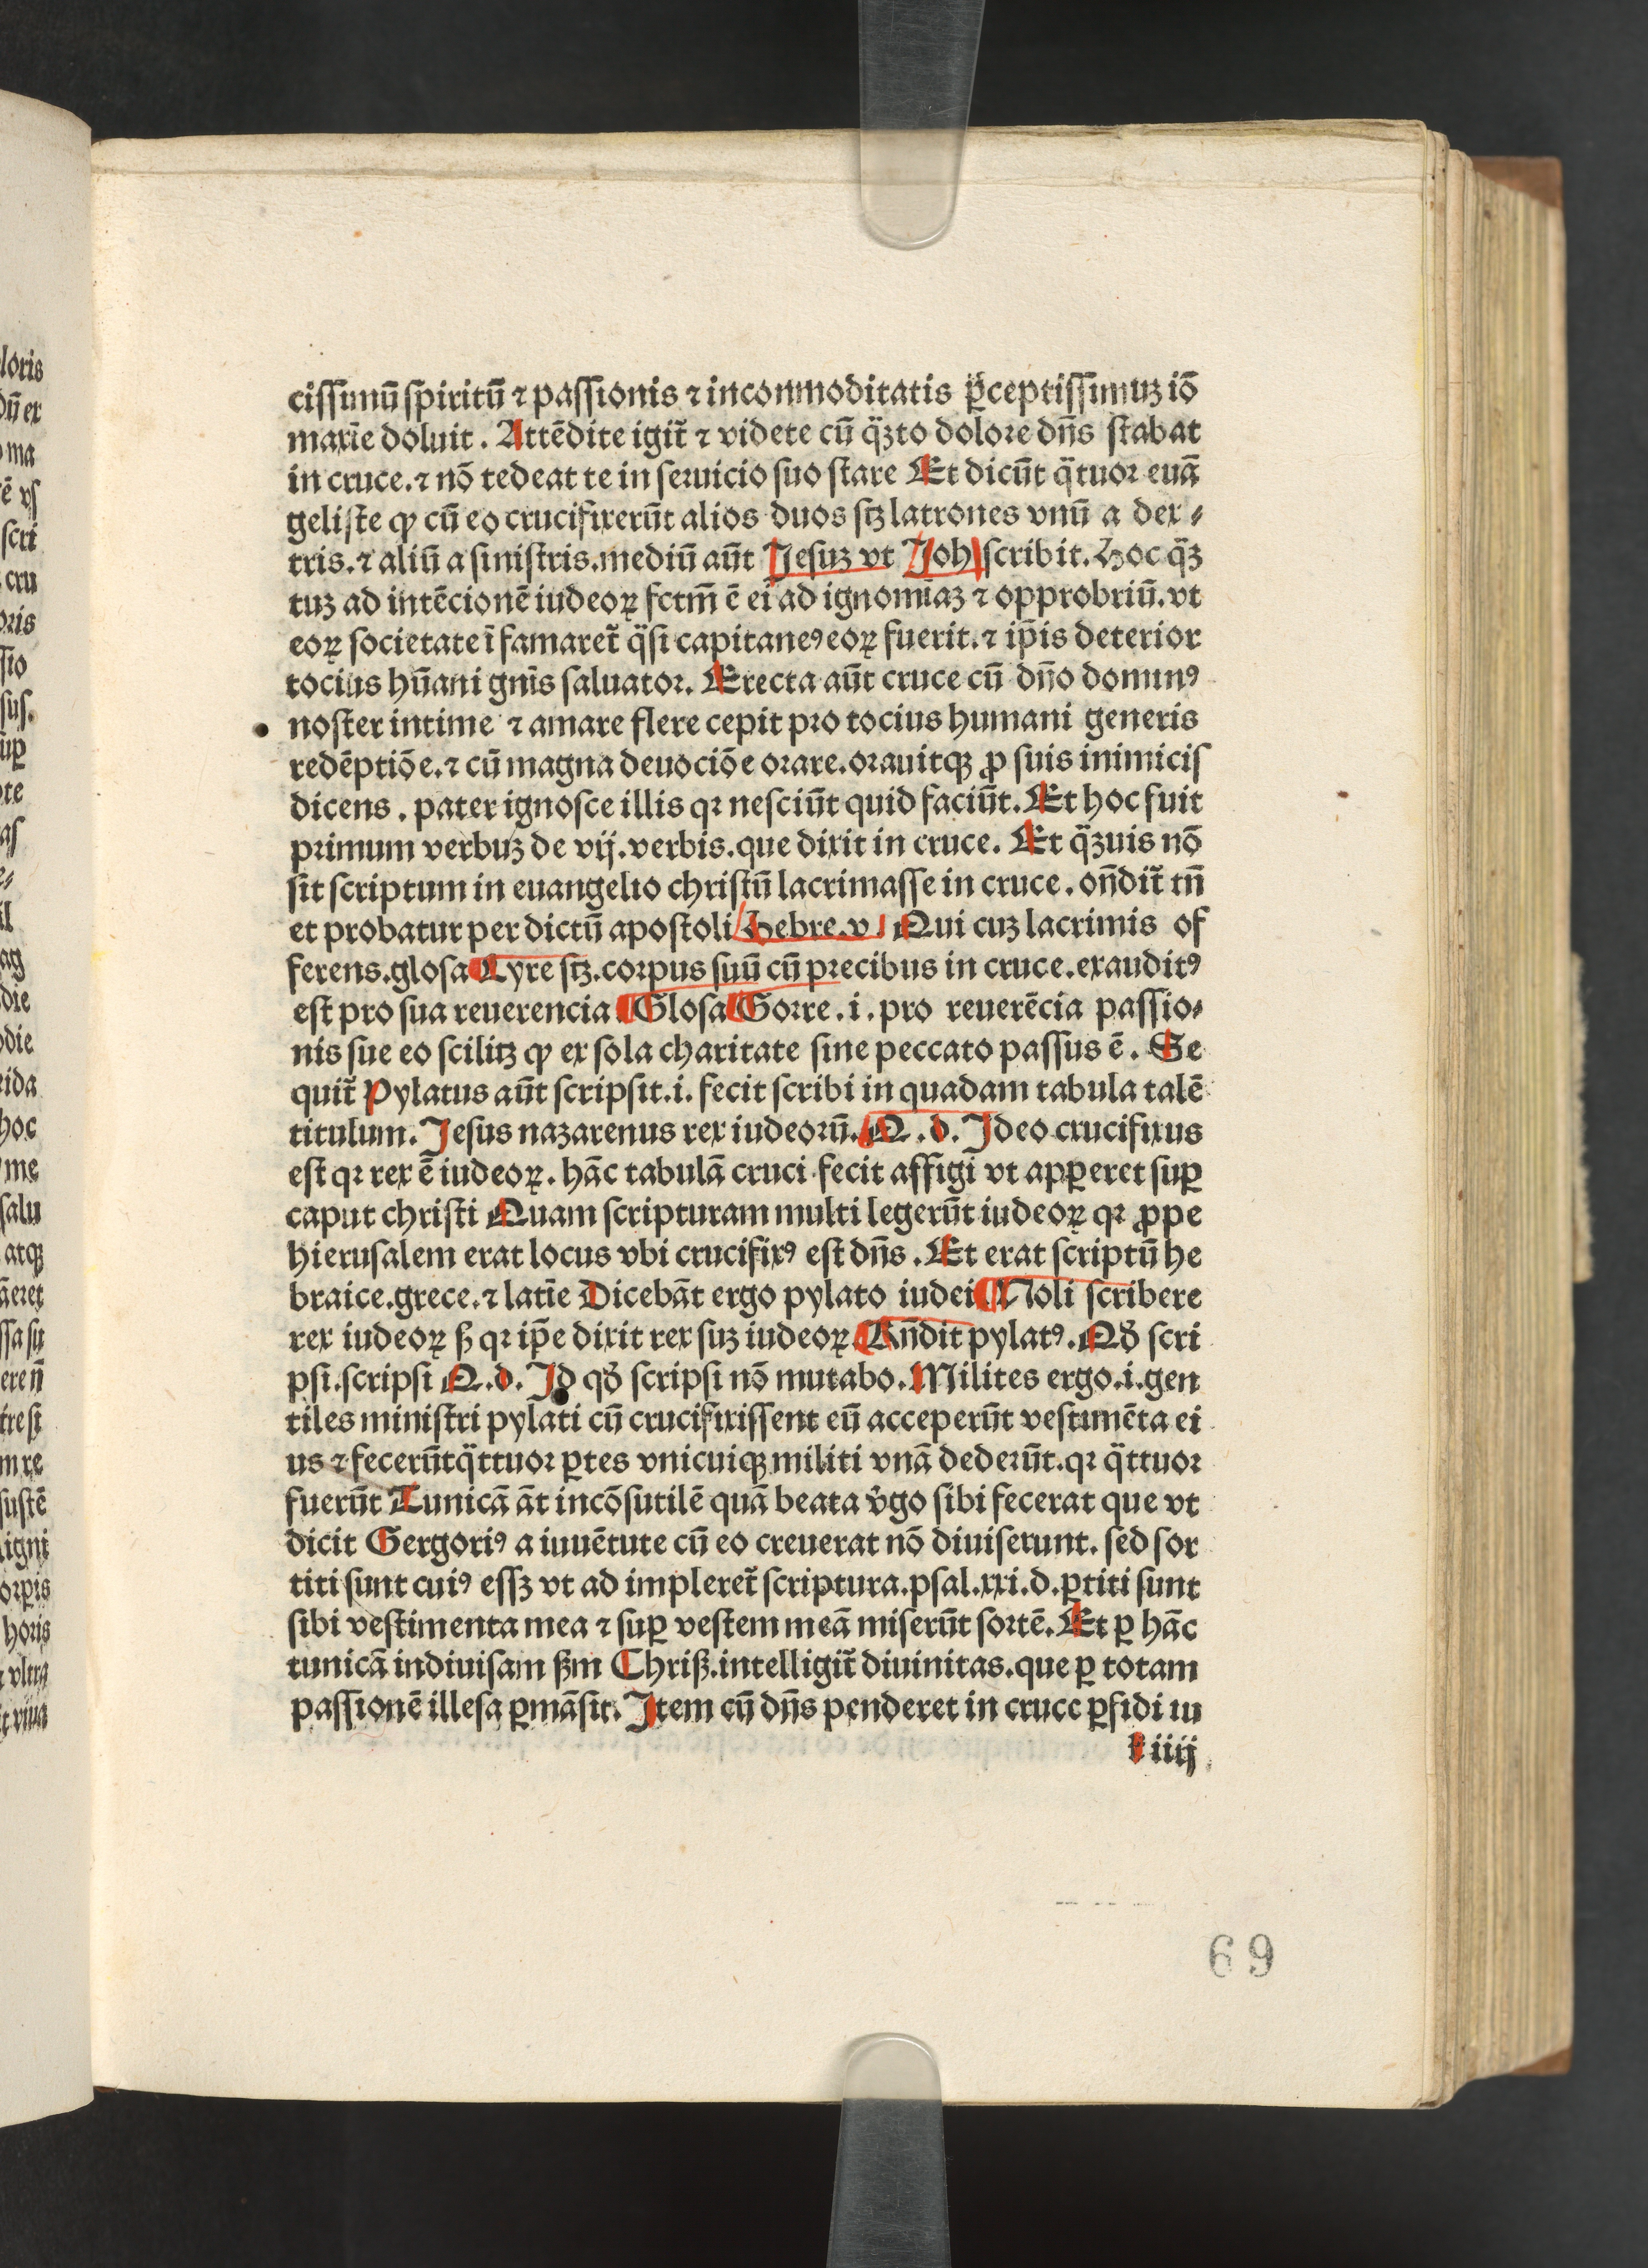 cissimū spiritū ⁊ passionis ⁊ inconmoditatis p̄ceptissimuꝫ iō
maxīe doluit. Attēdite igit̃ ⁊ videte cū qͣꝫto dolore dn̄s stabat
in cruce. ⁊ nō tedeat te in seruicio suo stare Et dicūt qͣtuor euā
geliste ꝙ cū eo crucifixerūt alios duos sꝫ latrones vnū a dex⸗
tris. ⁊ aliū a sinistris. mediū aūt Jesuꝫ vt Joh scribit. Hoc qͣꝫ
tuꝫ ad intēcionē iudeoꝝ fctm̄ ē ei ad ignomīaꝫ ⁊ opprobriū. vt
eoꝝ societate īfamaret̃ qͣsi capitaneꝰ eoꝝ fuerit. ⁊ ip̄is deterior
tocius hūani gn̄is saluator. Erecta aūt cruce cū dn̄o dominꝰ
noster intime ⁊ amare flere cepit pro tocius humani generis
redēptiōe. ⁊ cū magna deuociōe orare. orauitqꝫ ꝓ suis inimicis
dicens. pater ignosce illis qꝛ nesciūt quid faciūt. Et hoc fuit
primum verbuꝫ de vij. verbis. que dixit in cruce. Et qͣꝫuis nō
sit scriptum in euangelio christū lacrimasse in cruce. on̄dit̃ tn̄
et probatur per dictū apostoli Hebre. v. Qui cuꝫ lacrimis of
ferens. glosa Lyre sꝫ. corpus suū cū precibus in cruce. exauditꝰ
est pro sua reuerencia. Glosa Gorre. i. pro reuerēcia passio⸗
nis sue eo scilitꝫ ꝙ ex sola charitate sine peccato passus ē. Se
quit̃ Pylatus aūt scripsit. i. fecit scribi in quadam tabula talē
titulum. Jesus nazarenus rex iudeorū. Q. d. Jdeo crucifixus
est qꝛ rex ē iudeoꝝ. hāc tabulā cruci fecit affigi vt apꝑeret suꝑ
caput christi Quam scripturam multi legerūt iudeoꝝ qꝛ ꝓpe
hierusalem erat locus vbi crucifixꝰ est dn̄s. Et erat scriptū he
braice. grece. ⁊ latīe Dicebāt ergo pylato iudei Noli scribere
rex iudeoꝝ ß qꝛ ip̄e dixit rex suꝫ iudeoꝝ. Rn̄dit pylatꝰ. Qd̛ scri
psi. scripsi Q. d. Jd qd̛ scripsi nō mutabo. Milites ergo. i. gen
tiles ministri pylati cū crucifixissent eū acceperūt vestimēta ei
us ⁊ fecerūt qͣttuor ꝑtes vnicuiqꝫ militi vnā dederūt. qꝛ qͣttuor
fuerūt Tunicā āt incōsutilē quā beata v̛go sibi fecerat que vt
dicit Gergoriꝰ a iuuētute cū eo creuerat nō diuiserunt. sed sor
titi sunt cuiꝰ essꝫ vt ad impleret̃ scriptura. psal. xxi. d. ꝑtiti sunt
sibi vestimenta mea ⁊ suꝑ vestem meā miserūt sortē. Et ꝑ hāc
tunicā indiuisam ßm Chriß. intelligit̃ diuinitas. que ꝑ totam
passionē illesa ꝑmāsit. Jtem cū dn̄s penderet in cruce ꝑfidi iu
iiij
69